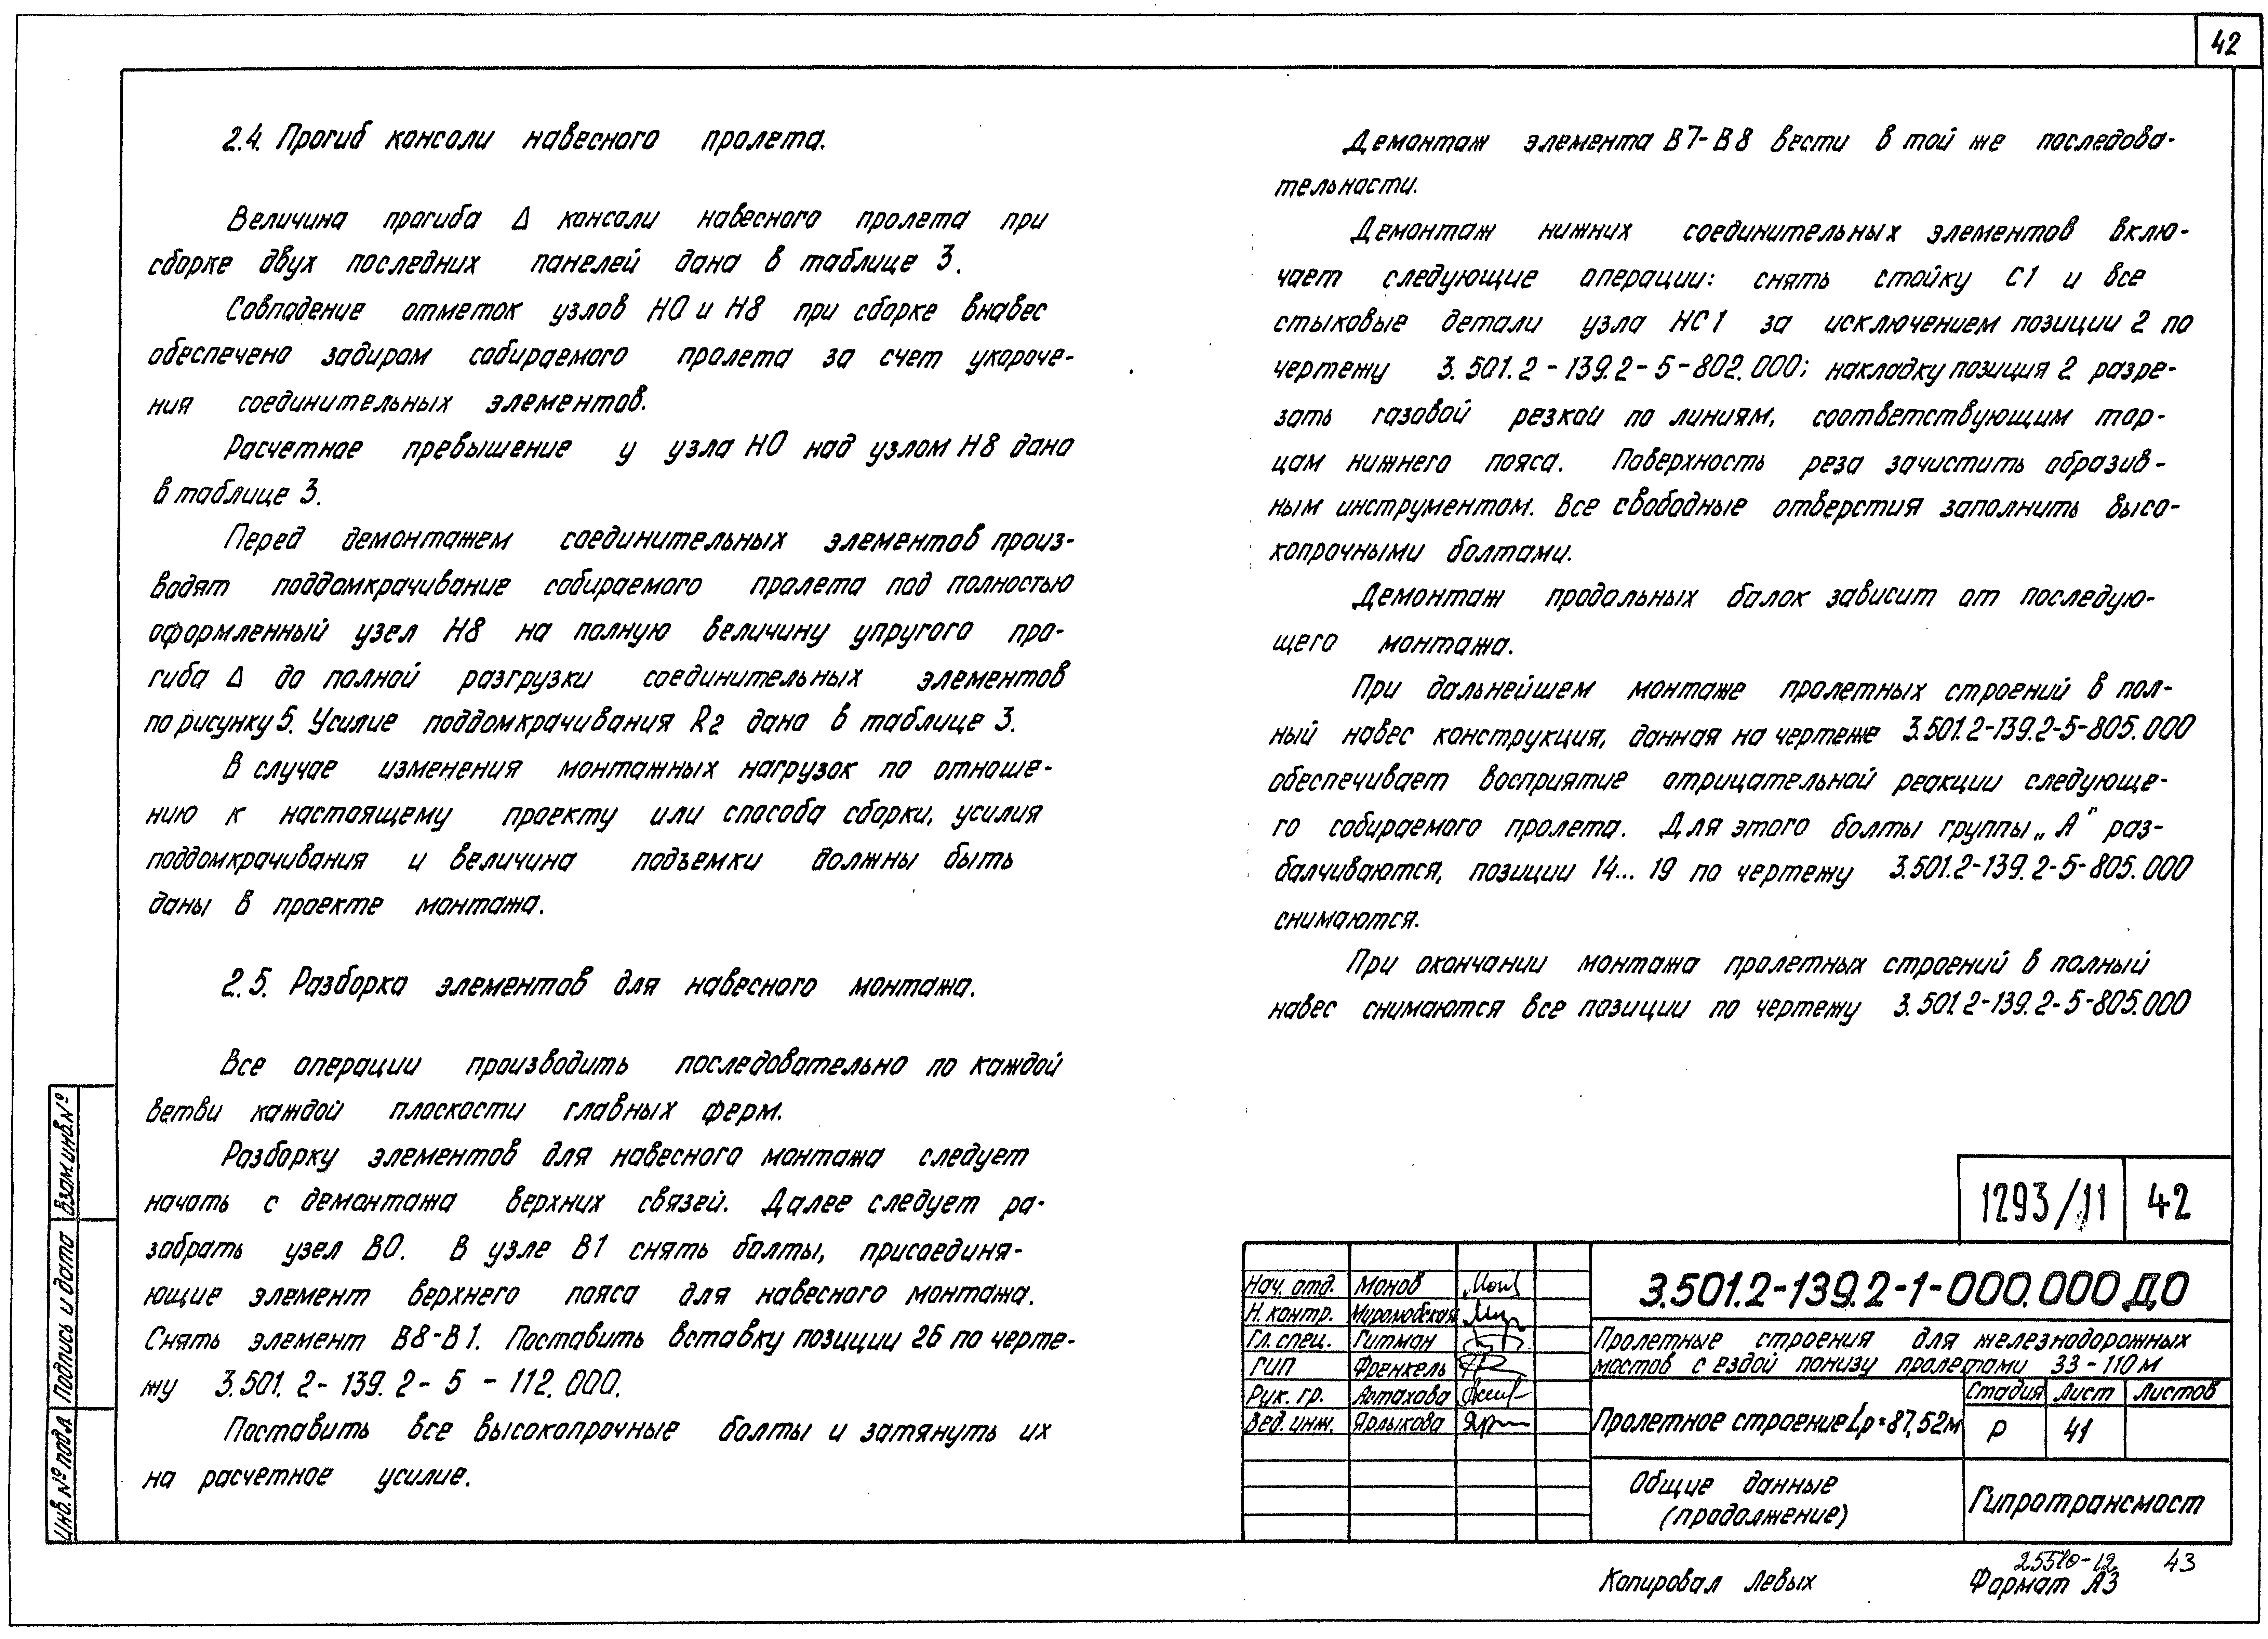 42
2.4. Прогиб консоли навесного пролета.
Величина прогиба Δ консоли навесного пролета при
сборке двух последних панелей дана в таблице 3.
Совпадение отметок узлов Н0 и Н8 при сборке внавес
обеспечено задиром собираемого пролета за счет укороче-
ния соединительных элементов.
Расчетное превышение у узла Н0 над узлом Н8 дано
в таблице 3.
Перед демонтажем соединительных элементов произ-
водят поддомкрачивание собираемого пролета под полностью
оформленный узел Н8 на полную величину упругого про-
гиба Δ до полной разгрузки соединительных элементов
по рисунку 5. Усилие поддомкрачивания R2 дано в таблице 3.
В случае изменения монтажных нагрузок по отноше-
нию к настоящему проекту или способа сборки, усилия
поддомкрачивания и величина подъемки должны быть
даны в проекте монтажа.
2.5. Разборка элементов для навесного монтажа.
Все операции производить последовательно по каждой
ветви каждой плоскости главных ферм.
Разборку элементов для навесного монтажа следует
начать с демонтажа верхних связей. Далее следует ра-
забрать узел В0. В узле В1 снять болты, присоединя-
ющие элемент верхнего пояса для навесного монтажа.
Снять элемент В8-В1. Поставить вставку позиции 26 по черте-
жу 3.501.2-139.2-5-112.000.
Поставить все высокопрочные болты и затянуть их
на расчетное усилие.
Демонтаж элемента В7-В8 вести в той же последова-
тельности.
Демонтаж нижних соединительных элементов вклю-
чает следующие операции: снять стойку С1 и все
стыковые детали узла НС1 за исключением позиции 2 по
чертежу 3.501.2-139.2-5-802.000; накладку позиция 2 разре-
зать газовой резкой по линиям, соответствующим тор-
цам нижнего пояса. Поверхность реза зачистить образив-
ным инструментом. Все свободные отверстия заполнить высо-
копрочными болтами.
Демонтаж продольных балок зависит от последую-
щего монтажа.
При дальнейшем монтаже пролетных строений в пол-
ный навес конструкция, данная на чертеже 3.501.2-139.2-5-805.000
обеспечивает восприятие отрицательной реакции следующе-
го собираемого пролета. Для этого болты группы „А" раз-
балчиваются, позиции 14... 19 по чертежу 3.501.2-139.2-5-805.000
снимаются.
При окончании монтажа пролетных строений в полный
навес снимаются все позиции по чертежу 3.501.2-139.2-5-805.000
Взам.инв.№
Подпись и дата
Инв. № подл.
1293/11 42
3.501.2-139.2-1-000.000 ДО
Нач. отд. Монов
Н. контр. Миролюбская
Гл. спец. Гитман
ГИП Френкель
Рук. гр. Астахова
Вед. инж. Ярлыкова
Пролетные строения для железнодорожных
мостов с ездой понизу пролетами 33-110 м
Пролетное строение Lр=87,52м
Стадия Лист Листов
Р 41
Общие данные
(продолжение)
Гипротрансмост
Копировал Левых
25510-12 43
Формат А3